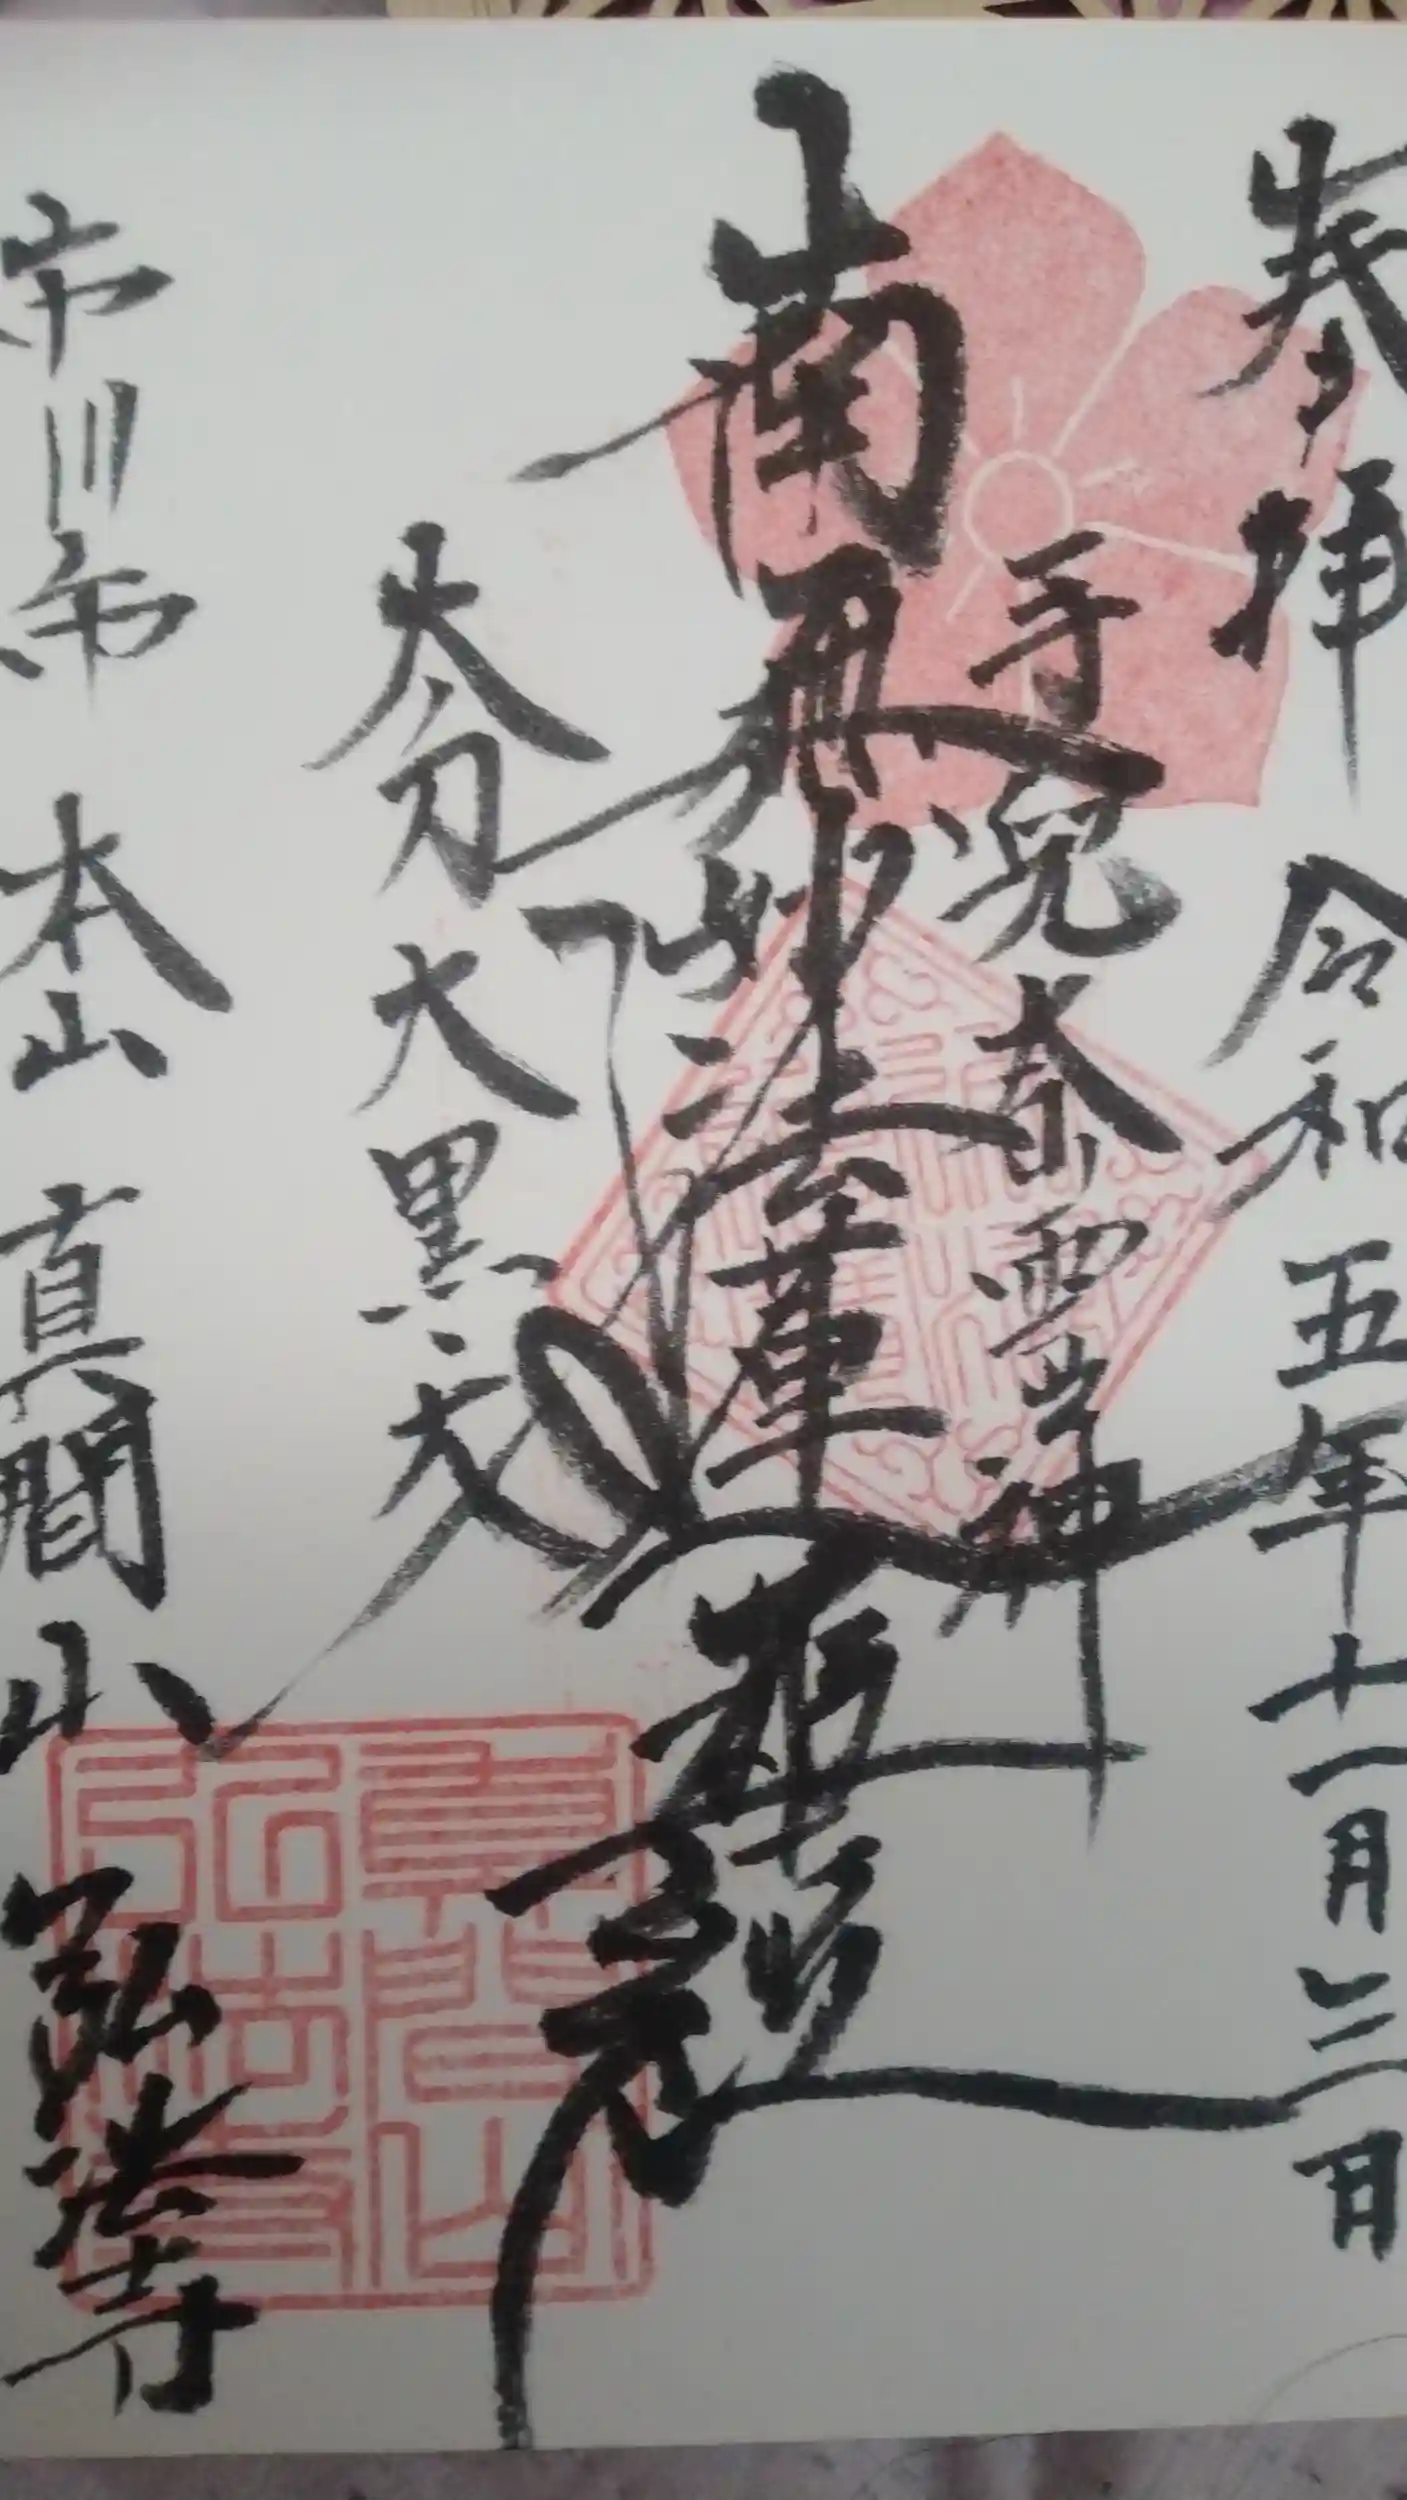 奉拝 令和五年十一月三日
手児奈霊神
南無妙法蓮華経
大分大黒天
市川市 本山 真間山 弘法寺
真間山
弘法寺